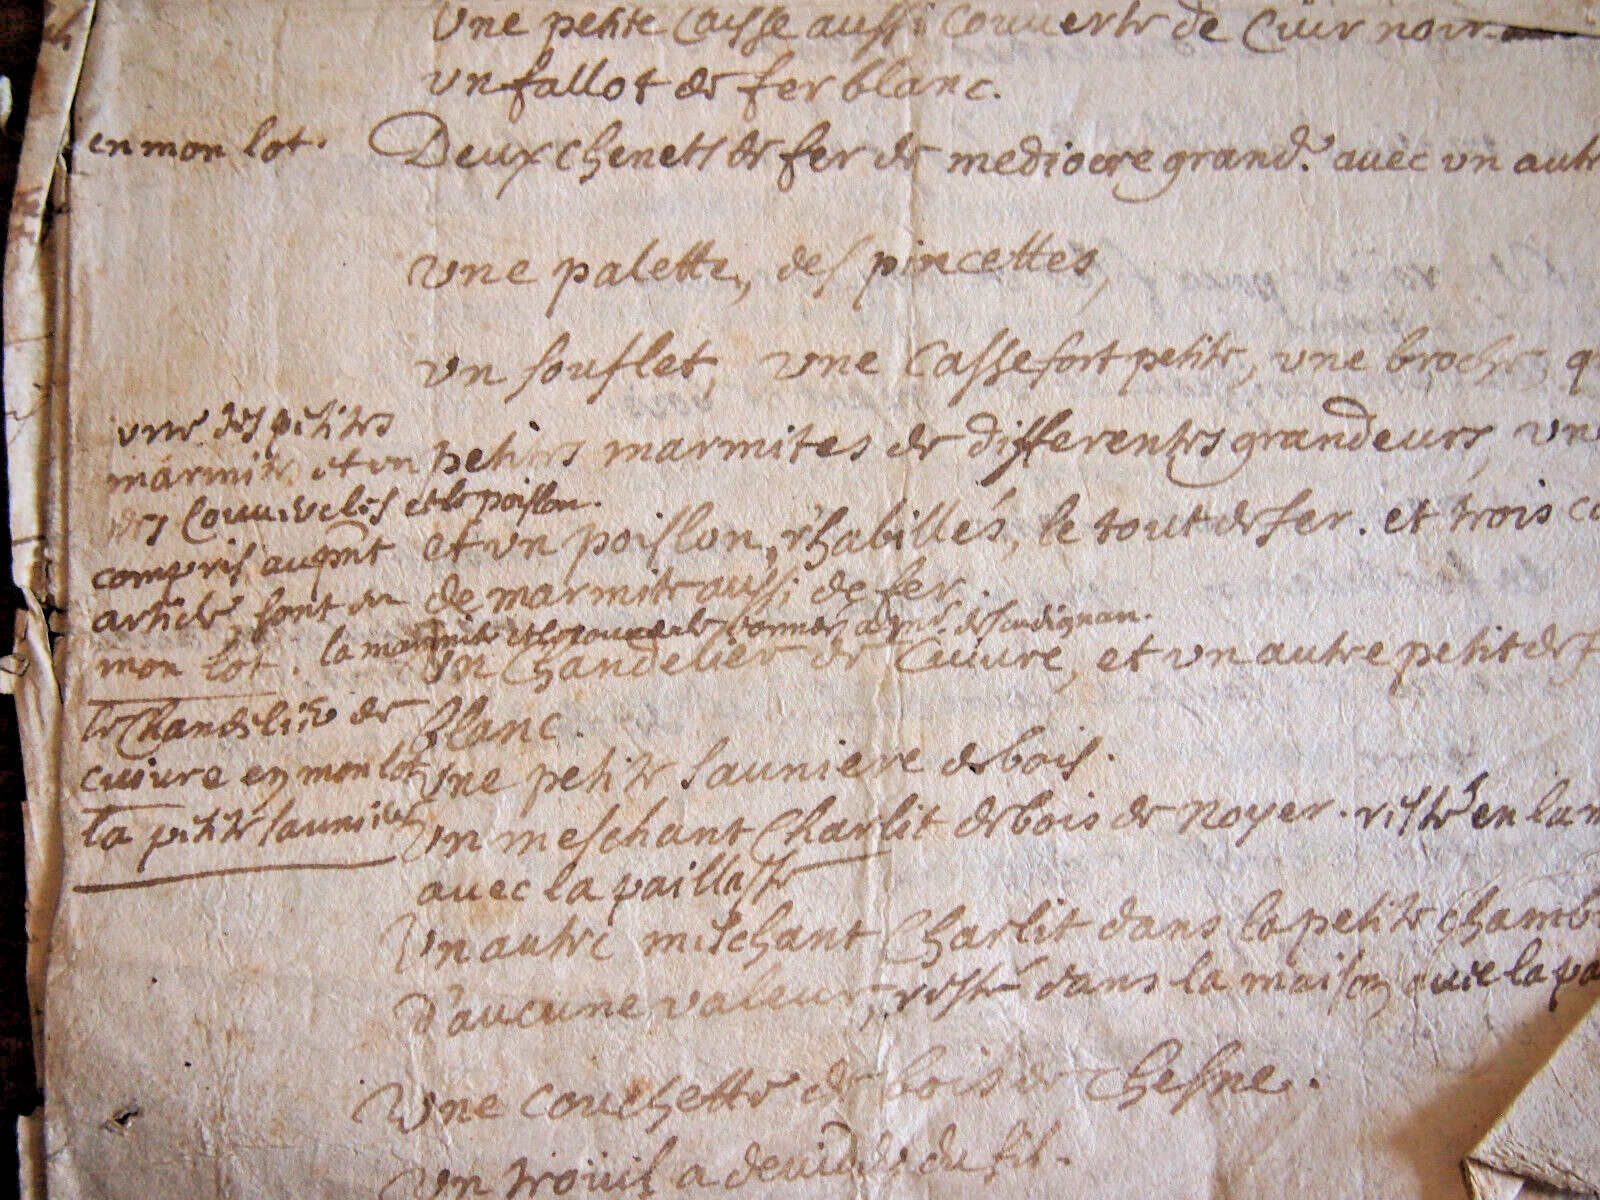 Une petite Caisse aussi couverte de Cuir noir
un fallot de fer blanc.
en mon lot.
Deux chenets de fer de mediocre grand.r avec un autre
une palette, des pincettes,
un souflet, une Casse fort petite, une broche,
une des petites
marmites et un
des Couvercles et le poislon.
compris au pnt
article, sont en
mon lot.
petites marmites de differentes grandeurs, une
et un poislon, rhabillés, le tout de fer. et trois
de marmite aussi de fer
la marmite et le couvercle donnés a
Un Chandelier de Cuivre, et un autre petit de
blanc.
le Chandelier de
cuivre en mon lot
la petite sauniere
Une petite sauniere de bois.
Un meschant Charlit de bois de noyer. resté en la
avec la paillasse
Un autre meschant Charlit dans la petite
d'aucune valeur, resté dans la maison avec la
Une couchette de bois de chesne.
Un trouil a devider du fil.